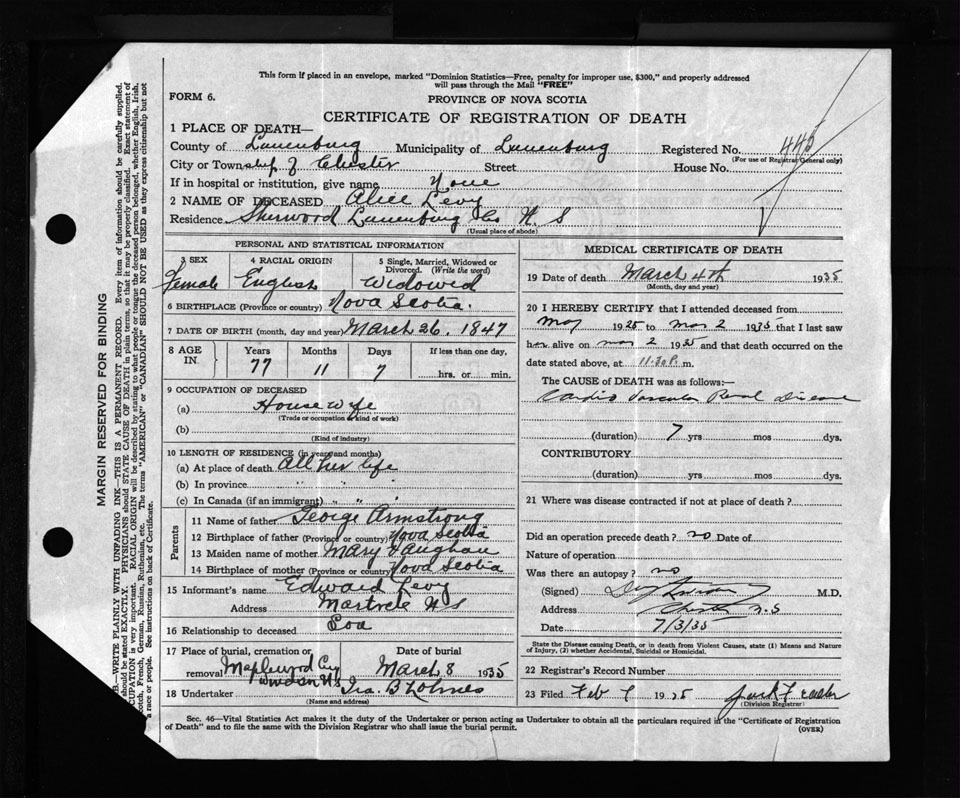 This form if placed in an envelope, marked "Dominion Statistics—Free, penalty for improper use, $300," and properly addressed
will pass through the Mail "FREE"
FORM 6.
PROVINCE OF NOVA SCOTIA
CERTIFICATE OF REGISTRATION OF DEATH
1 PLACE OF DEATH—
County of Lunenburg Municipality of Lunenburg Registered No. 443
(For use of Registrar General only)
City or Township of Chester Street House No.
If in hospital or institution, give name None
2 NAME OF DECEASED Alice Levy
Residence Sherwood Lunenburg Co N. S
(Usual place of abode)
PERSONAL AND STATISTICAL INFORMATION
3 SEX 4 RACIAL ORIGIN 5 Single, Married, Widowed or
Divorced. (Write the word)
Female English Widowed
6 BIRTHPLACE (Province or country) Nova Scotia.
7 DATE OF BIRTH (month, day and year) March 26. 1847
8 AGE IN Years Months Days If less than one day,
77 11 7 hrs. or min.
9 OCCUPATION OF DECEASED
(a) House wife
(Trade or occupation or kind of work)
(b)
(Kind of industry)
10 LENGTH OF RESIDENCE (in years and months)
(a) At place of death All her life
(b) In province " " "
(c) In Canada (if an immigrant) " " "
Parents
11 Name of father George Armstrong
12 Birthplace of father (Province or country) Nova Scotia
13 Maiden name of mother Mary
14 Birthplace of mother (Province or country) Nova Scotia
15 Informant's name Edward Levy
Address N S
16 Relationship to deceased Son
17 Place of burial, cremation or Date of burial
removal Maplewood March 8 1935
18 Undertaker Ira. B
(Name and address)
MEDICAL CERTIFICATE OF DEATH
19 Date of death March 4th 1935
(Month, day and year)
20 I HEREBY CERTIFY that I attended deceased from
May 1925 to Mar 2 1935 that I last saw
her alive on Mar 2 1935 and that death occurred on the
date stated above, at 11.30 P. m.
The CAUSE OF DEATH was as follows:—
Cardio Vascular Renal Disease
(duration) 7 yrs mos dys.
CONTRIBUTORY
(duration) yrs mos dys.
21 Where was disease contracted if not at place of death?
Did an operation precede death? no Date of
Nature of operation
Was there an autopsy? no
(Signed) M.D.
Address Chester N.S
Date 7/3/35
State the Disease causing Death, or in death from Violent Causes, state (1) Means and
Nature of Injury, (2) whether Accidental, Suicidal or Homicidal.
22 Registrar's Record Number
23 Filed 1935
(Division Registrar)
Sec. 46—Vital Statistics Act makes it the duty of the Undertaker or person acting as Undertaker to obtain all the particulars required in the "Certificate of Registration
of Death" and to file the same with the Division Registrar who shall issue the burial permit.
(OVER)
MARGIN RESERVED FOR BINDING
B.—WRITE PLAINLY WITH UNFADING INK—THIS IS A PERMANENT RECORD. Every item of information should be carefully supplied.
should be stated EXACTLY. PHYSICIANS should STATE CAUSE OF DEATH in plain terms, so that it may be properly classified. Exact statement of
CUPATION is very important. RACIAL ORIGIN will be described by stating to what people or tongue the deceased person belonged, whether English, Irish,
Scotch, French, German, Russian, Ruthenian, etc. The terms "AMERICAN" or "CANADIAN" SHOULD NOT BE USED as they express citizenship but not
a race or people. See instructions on back of Certificate.